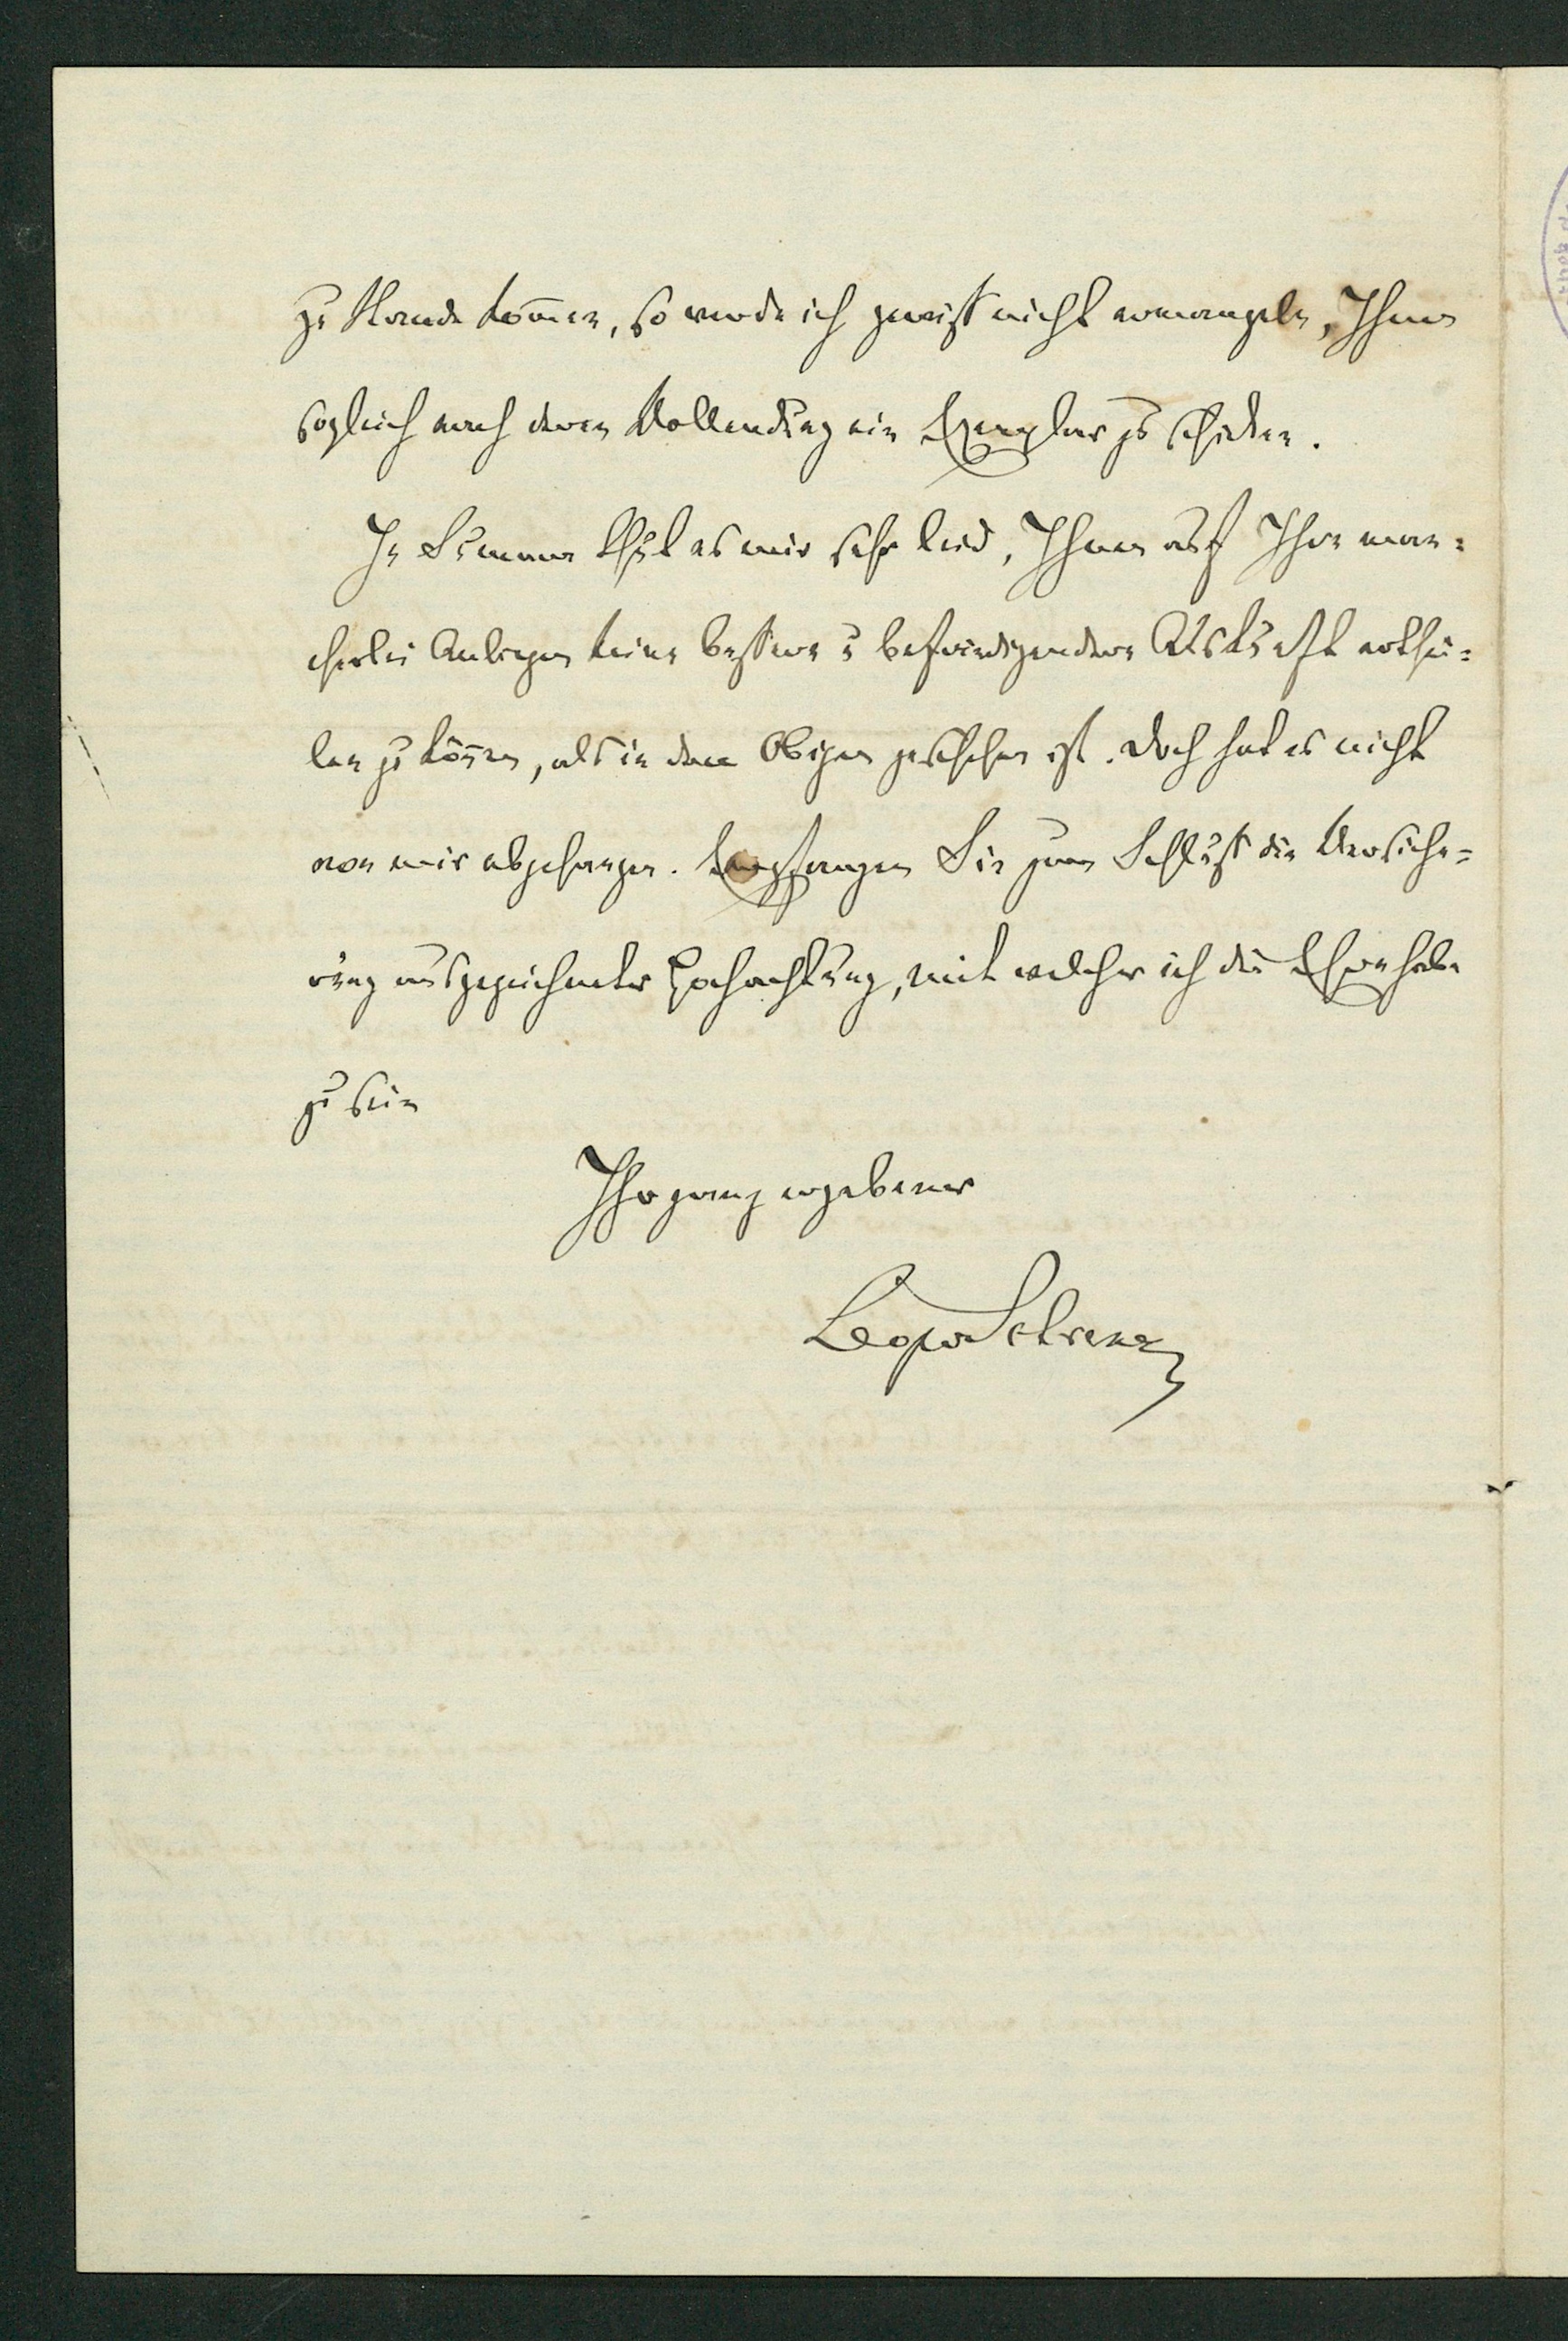 zu Stande kom̅en, so werde ich gewiss nicht ermangeln, Ihnen
sogleich nach deren Vollendung ein Exemplar zu schicken.
In Summa thut es mir sehr leid, Ihnen auf Ihre man=
cherlei Anliegen keine bessere u befriedigendere Auskunft erthei=
len zu kön̅en, als in dem Obigen geschehen ist. Doch hat es nicht
von mir abgehangen. Empfangen Sie zum Schluss die Versiche=
rung ausgezeichneter Hochachtung, mit welcher ich die Ehre habe
zu sein
Ihr ganz ergebener
Leop. v. Schrenck